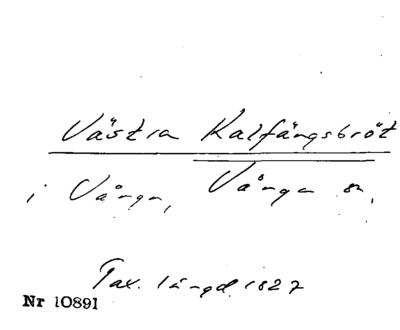 Västra Kalfängsbröt
i Vånga, Vånga sn.
Tax. längd. 1827
Nr 10891